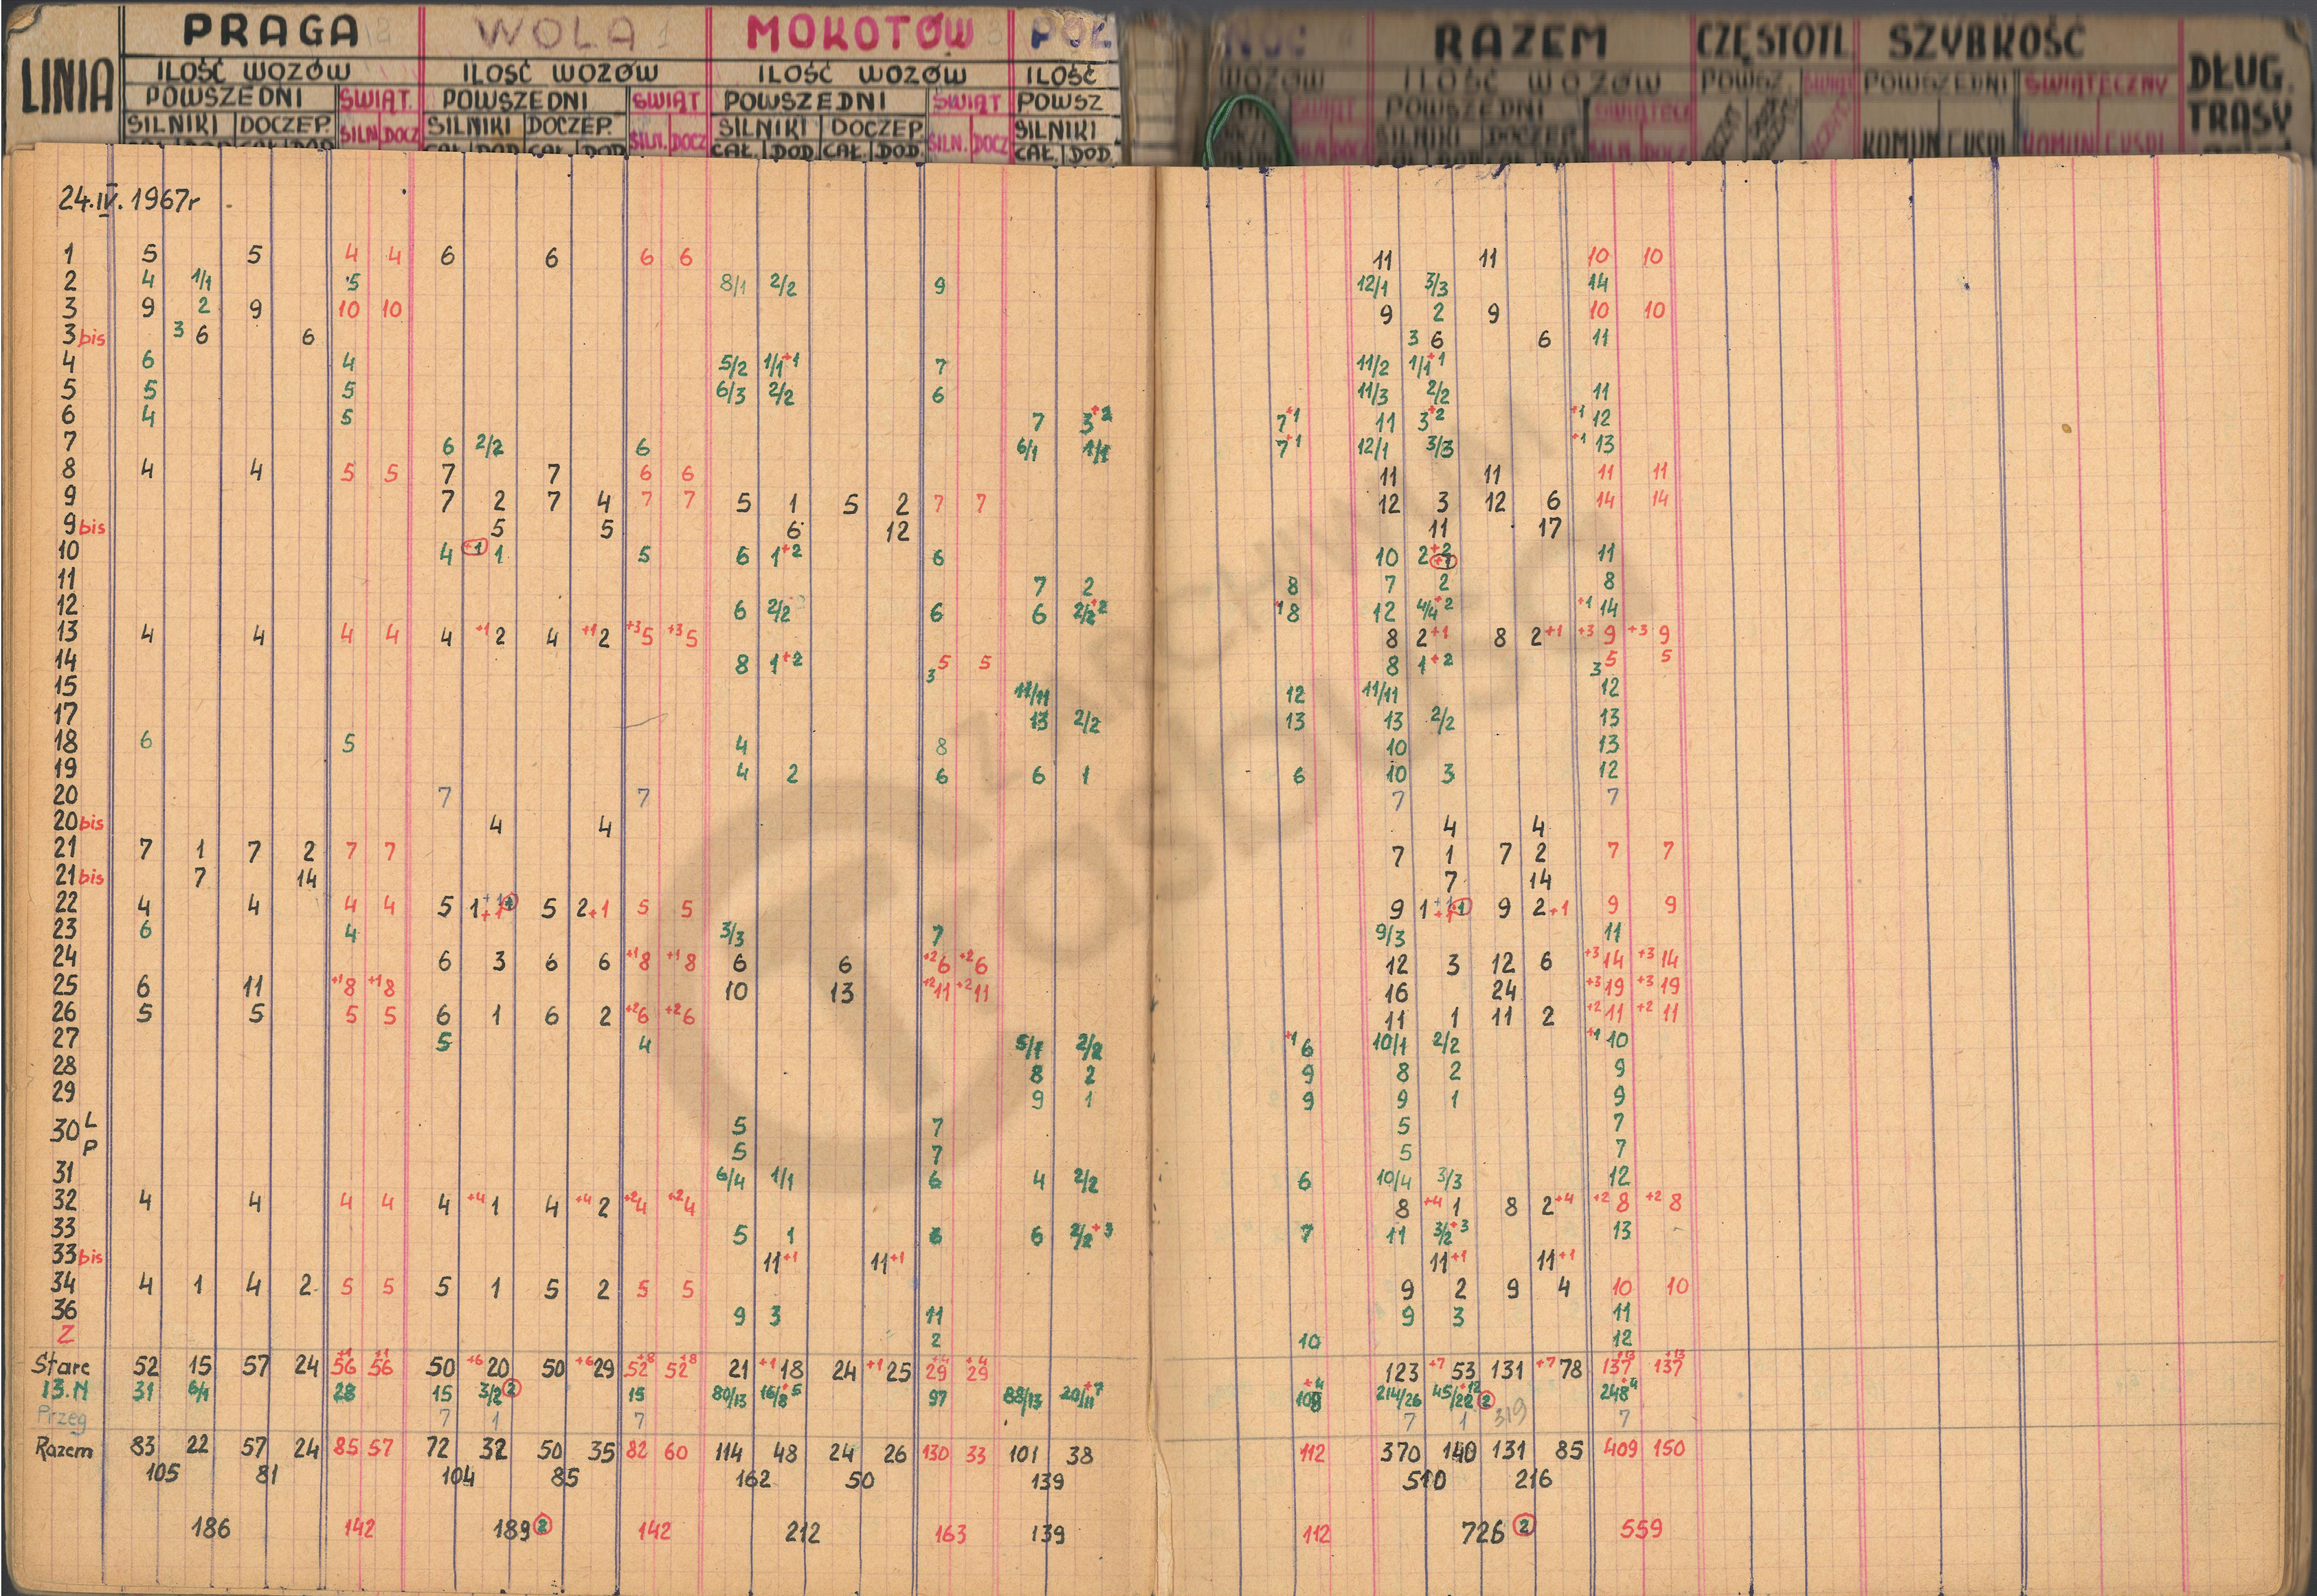 LINIA PRAGA WOLA MOKOTÓW PÓŁ NOC RAZEM CZĘSTOTL. SZYBKOŚĆ DŁUG. TRASY
ILOŚĆ WOZÓW ILOŚĆ WOZÓW ILOŚĆ WOZÓW ILOŚĆ WOZÓW ILOŚĆ WOZÓW POWSZ. ŚWIĄT POWSZEDNI ŚWIĄTECZNY
POWSZEDNI ŚWIĄT. POWSZEDNI ŚWIĄT POWSZEDNI ŚWIĄT POWSZ POWSZEDNI
SILNIKI DOCZEP. SILN DOCZ SILNIKI DOCZEP. SILN. DOCZ SILNIKI DOCZEP. SILN. DOCZ SILNIKI SILNIKI DOCZEP KOMUN EKSPL KOMUN EKSPL
CAŁ. DOD. CAŁ. DOD CAŁ. DOD. CAŁ. DOD. CAŁ. DOD. CAŁ. DOD. CAŁ. DOD.
24.IV.1967r
1 5 5 4 4 6 6 6 6 11 11 10 10
2 4 1/1 5 8/1 2/2 9 12/1 3/3 14
3 9 2 9 10 10 9 2 9 10 10
3bis 3 6 6 3 6 6 11
4 6 4 5/2 1/1+1 7 11/2 1/1+1
5 5 5 6/3 2/2 6 11/3 2/2 11
6 4 5 7 3+2 7+1 11 3+2 +1 12
7 6 2/2 6 6/1 1/1 7+1 12/1 3/3 +1 13
8 4 4 5 5 7 7 6 6 11 11 11 11
9 7 2 7 4 7 7 5 1 5 2 7 7 12 3 12 6 14 14
9bis 5 5 6 12 11 17
10 4 +1 1 5 6 1+2 6 10 2+2 +1 11
11 7 2 8 7 2 8
12 6 2/2 6 6 2/2+2 +1 8 12 4/4+2 +1 14
13 4 4 4 4 4 +1 2 4 +1 2 +3 5 +3 5 8 2+1 8 2+1 +3 9 +3 9
14 8 1+2 3 5 5 8 1+2 3 5 5
15 11/11 12 11/11 12
17 13 2/2 13 13 2/2 13
18 6 5 4 8 10 13
19 4 2 6 6 1 6 10 3 12
20 7 7 7 7
20bis 4 4 4 4
21 7 1 7 2 7 7 7 1 7 2 7 7
21bis 7 14 7 14
22 4 4 4 4 5 1 +1 5 2+1 5 5 9 1 +1 9 2+1 9 9
23 6 4 3/3 7 9/3 11
24 6 3 6 6 +1 8 +1 8 6 6 +2 6 +2 6 12 3 12 6 +3 14 +3 14
25 6 11 +1 8 +1 8 10 13 +2 11 +2 11 16 24 +3 19 +3 19
26 5 5 5 5 6 1 6 2 +2 6 +2 6 11 1 11 2 +2 11 +2 11
27 5 4 5/1 2/2 +1 6 10/1 2/2 +1 10
28 8 2 9 8 2 9
29 9 1 9 9 1 9
30 L 5 7 5 7
P 5 7 5 7
31 6/4 1/1 6 4 2/2 6 10/4 3/3 12
32 4 4 4 4 4 +4 1 4 +4 2 +2 4 +2 4 8 +4 1 8 2+4 +2 8 +2 8
33 5 1 6 6 2/2+3 7 11 3/2+3 13
33bis 11+1 11+1 11+1 11+1
34 4 1 4 2 5 5 5 1 5 2 5 5 9 2 9 4 10 10
36 9 3 11 9 3 11
Z 2 10 12
Stare 52 15 57 24 56+1 56+1 50 +6 20 50 +6 29 52+8 52+8 21 +1 18 24 +1 25 29+4 29+4 123 +7 53 131 +7 78 137+13 137+13
13.N 31 6/1 28 15 3/2 2 15 80/13 16/8+5 97 88/13 20/11+7 108+4 214/26 45/22+12 2 248+4
Przeg 7 1 7 7 1 319 7
Razem 83 22 57 24 85 57 72 32 50 35 82 60 114 48 24 26 130 33 101 38 112 370 140 131 85 409 150
105 81 104 85 162 50 139 510 216
186 142 189 2 142 212 163 139 112 726 2 559